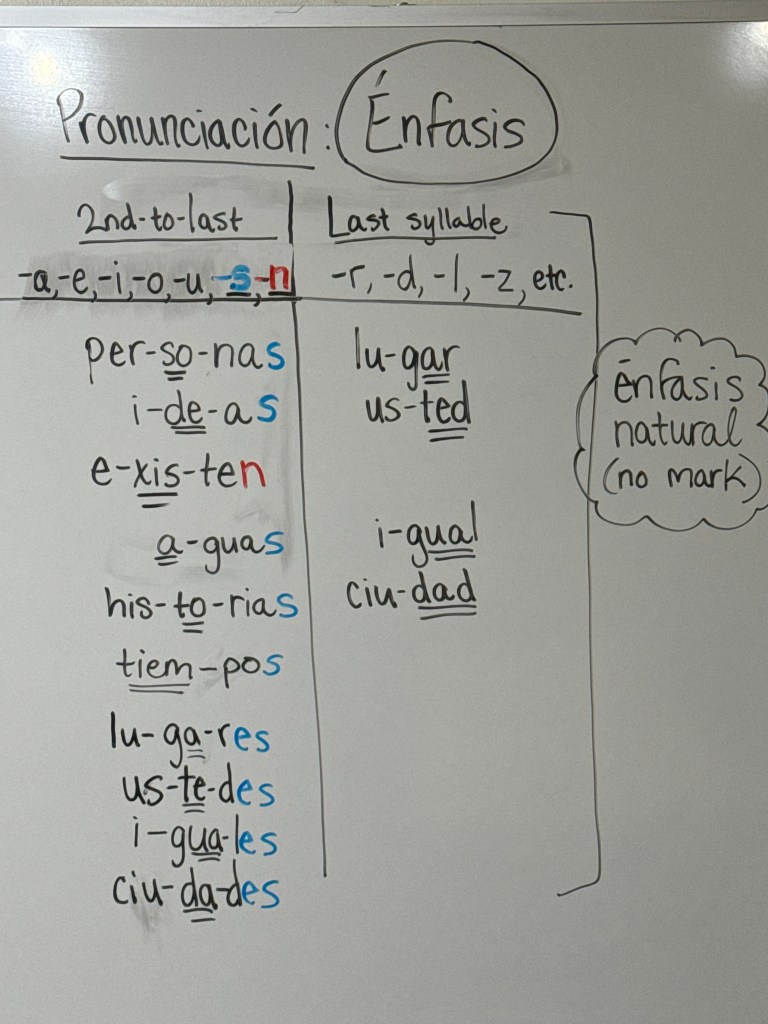 Pronunciación: Énfasis
2nd-to-last
-a, -e, -i, -o, -u, -s, -n
per-so-nas
i-de-as
e-xis-ten
a-guas
his-to-rias
tiem-pos
lu-ga-res
us-te-des
i-gua-les
ciu-da-des
Last syllable
-r, -d, -l, -z, etc.
lu-gar
us-ted
i-gual
ciu-dad
énfasis
natural
(no mark)